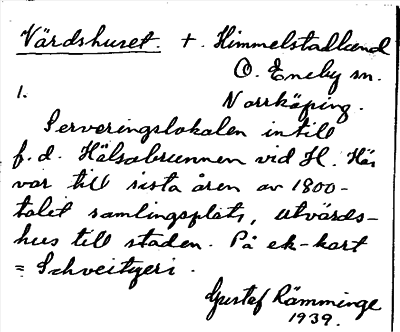 Värdshuset. +. Himmelstadlund
Ö. Eneby sn.
1. Norrköping.
Serveringslokalen intill
f.d. Hälsobrunnen vid H. Här
var till sista åren av 1800-
talet samlingsplats, utvärds-
hus till staden. På ek-kart
= Schveitzeri.
Gustaf Rämminge
1939.